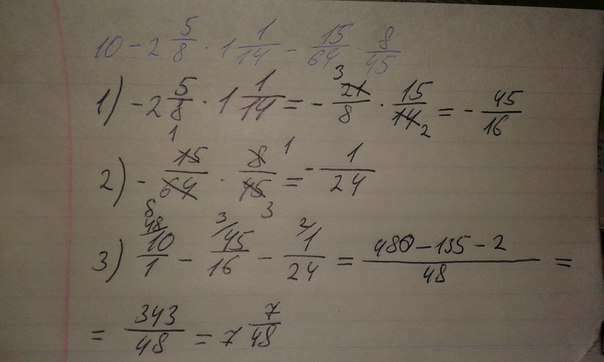 10 - 2 5/8 · 1 1/14 - 15/64 · 8/45
1) - 2 5/8 · 1 1/14 = - 21/8 · 15/14 = - 45/16
2) - 15/64 · 8/45 = - 1/24
3) 10/1 - 45/16 - 1/24 = 480 - 135 - 2/48 =
= 343/48 = 7 7/48